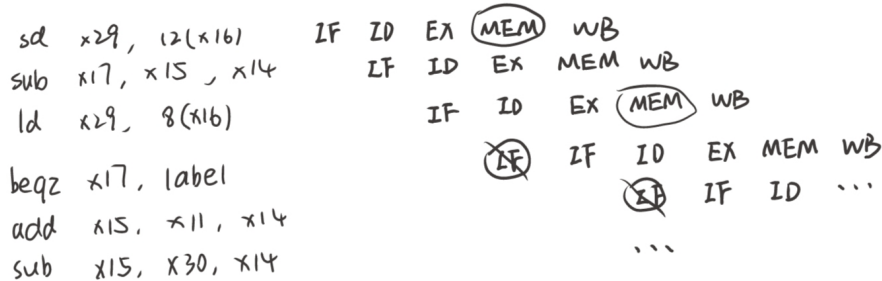 sd x29, 12(x16) IF ID EX MEM WB
sub x17, x15, x14 IF ID EX MEM WB
ld x29, 8(x16) IF ID EX MEM WB
beqz x17, label IF IF ID EX MEM WB
add x15, x11, x14 IF IF ID ...
sub x15, x30, x14 ...